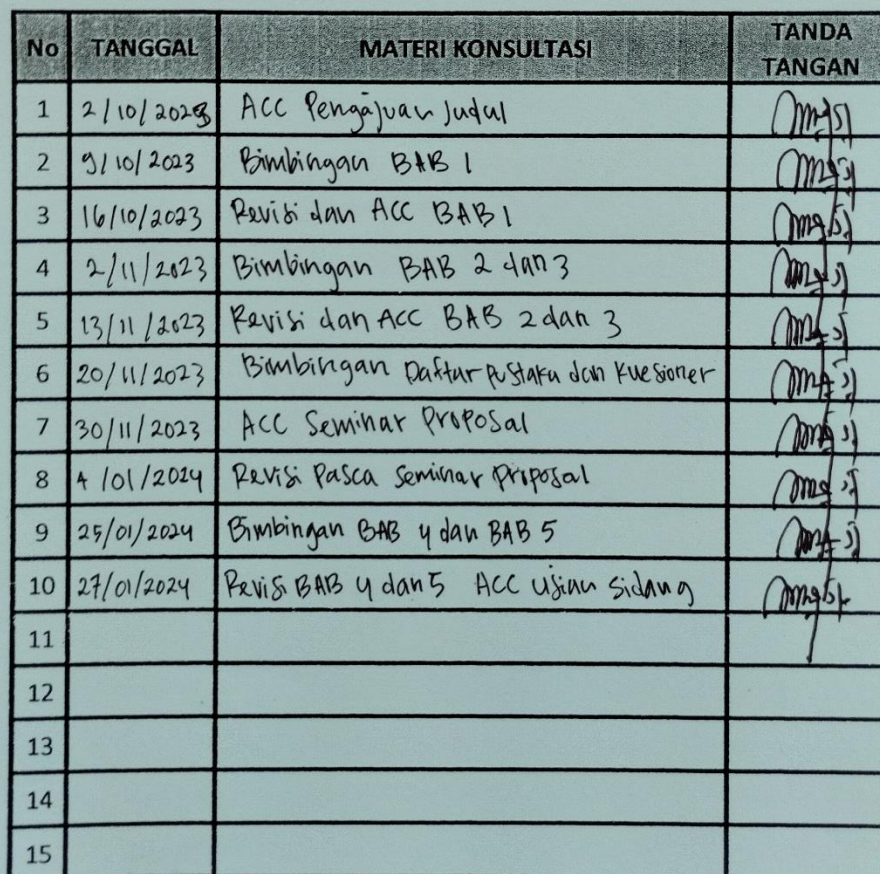 No TANGGAL MATERI KONSULTASI TANDA TANGAN
1 2/10/2023 ACC Pengajuan Judul
2 9/10/2023 Bimbingan BAB 1
3 16/10/2023 Revisi dan ACC BAB 1
4 2/11/2023 Bimbingan BAB 2 dan 3
5 13/11/2023 Revisi dan ACC BAB 2 dan 3
6 20/11/2023 Bimbingan Daftar Pustaka dan Kuesioner
7 30/11/2023 ACC Seminar Proposal
8 4/01/2024 Revisi Pasca Seminar Proposal
9 25/01/2024 Bimbingan BAB 4 dan BAB 5
10 27/01/2024 Revisi BAB 4 dan 5 ACC Ujian Sidang
11
12
13
14
15